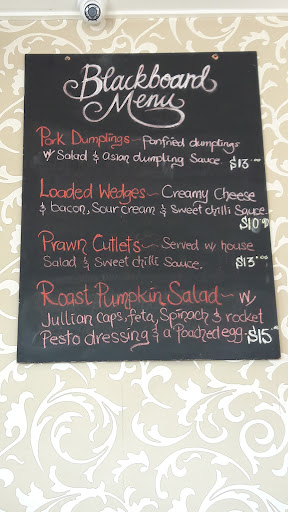 Blackboard
Menu
Pork Dumplings - Panfried dumplings
w/ Salad & Asian dumpling Sauce. $13.00
Loaded Wedges - Creamy Cheese
& bacon, Sour cream & Sweet chilli Sauce.
$10.90
Prawn Cutlets - Served w/ house
Salad & Sweet chilli Sauce. $13.00
Roast Pumpkin Salad - w/
Jullian caps, feta, Spinach & rocket
Pesto dressing & a Poached egg. $15.00